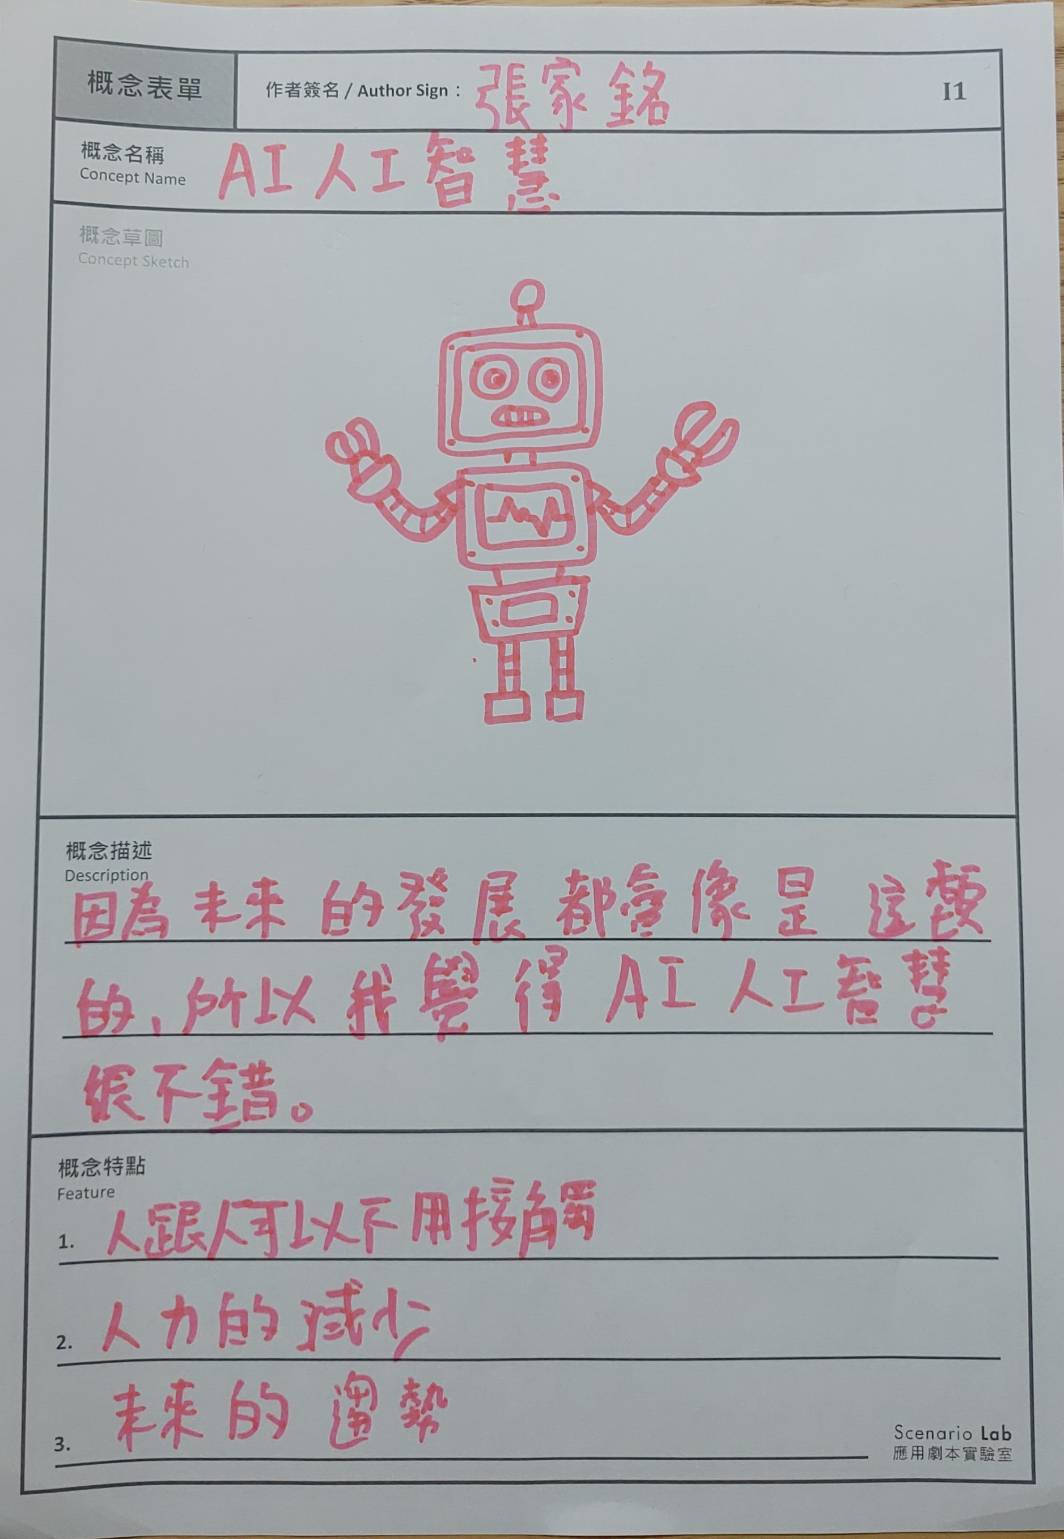 概念表單
作者簽名 / Author Sign : 張家銘
I1
概念名稱
Concept Name
AI人工智慧
概念草圖
Concept Sketch
概念描述
Description
因為未來的發展都會像是這類
的,所以我覺得AI人工智慧
很不錯。
概念特點
Feature
1. 人跟人可以不用接觸
2. 人力的減少
3. 未來的趨勢
Scenario Lab
應用劇本實驗室